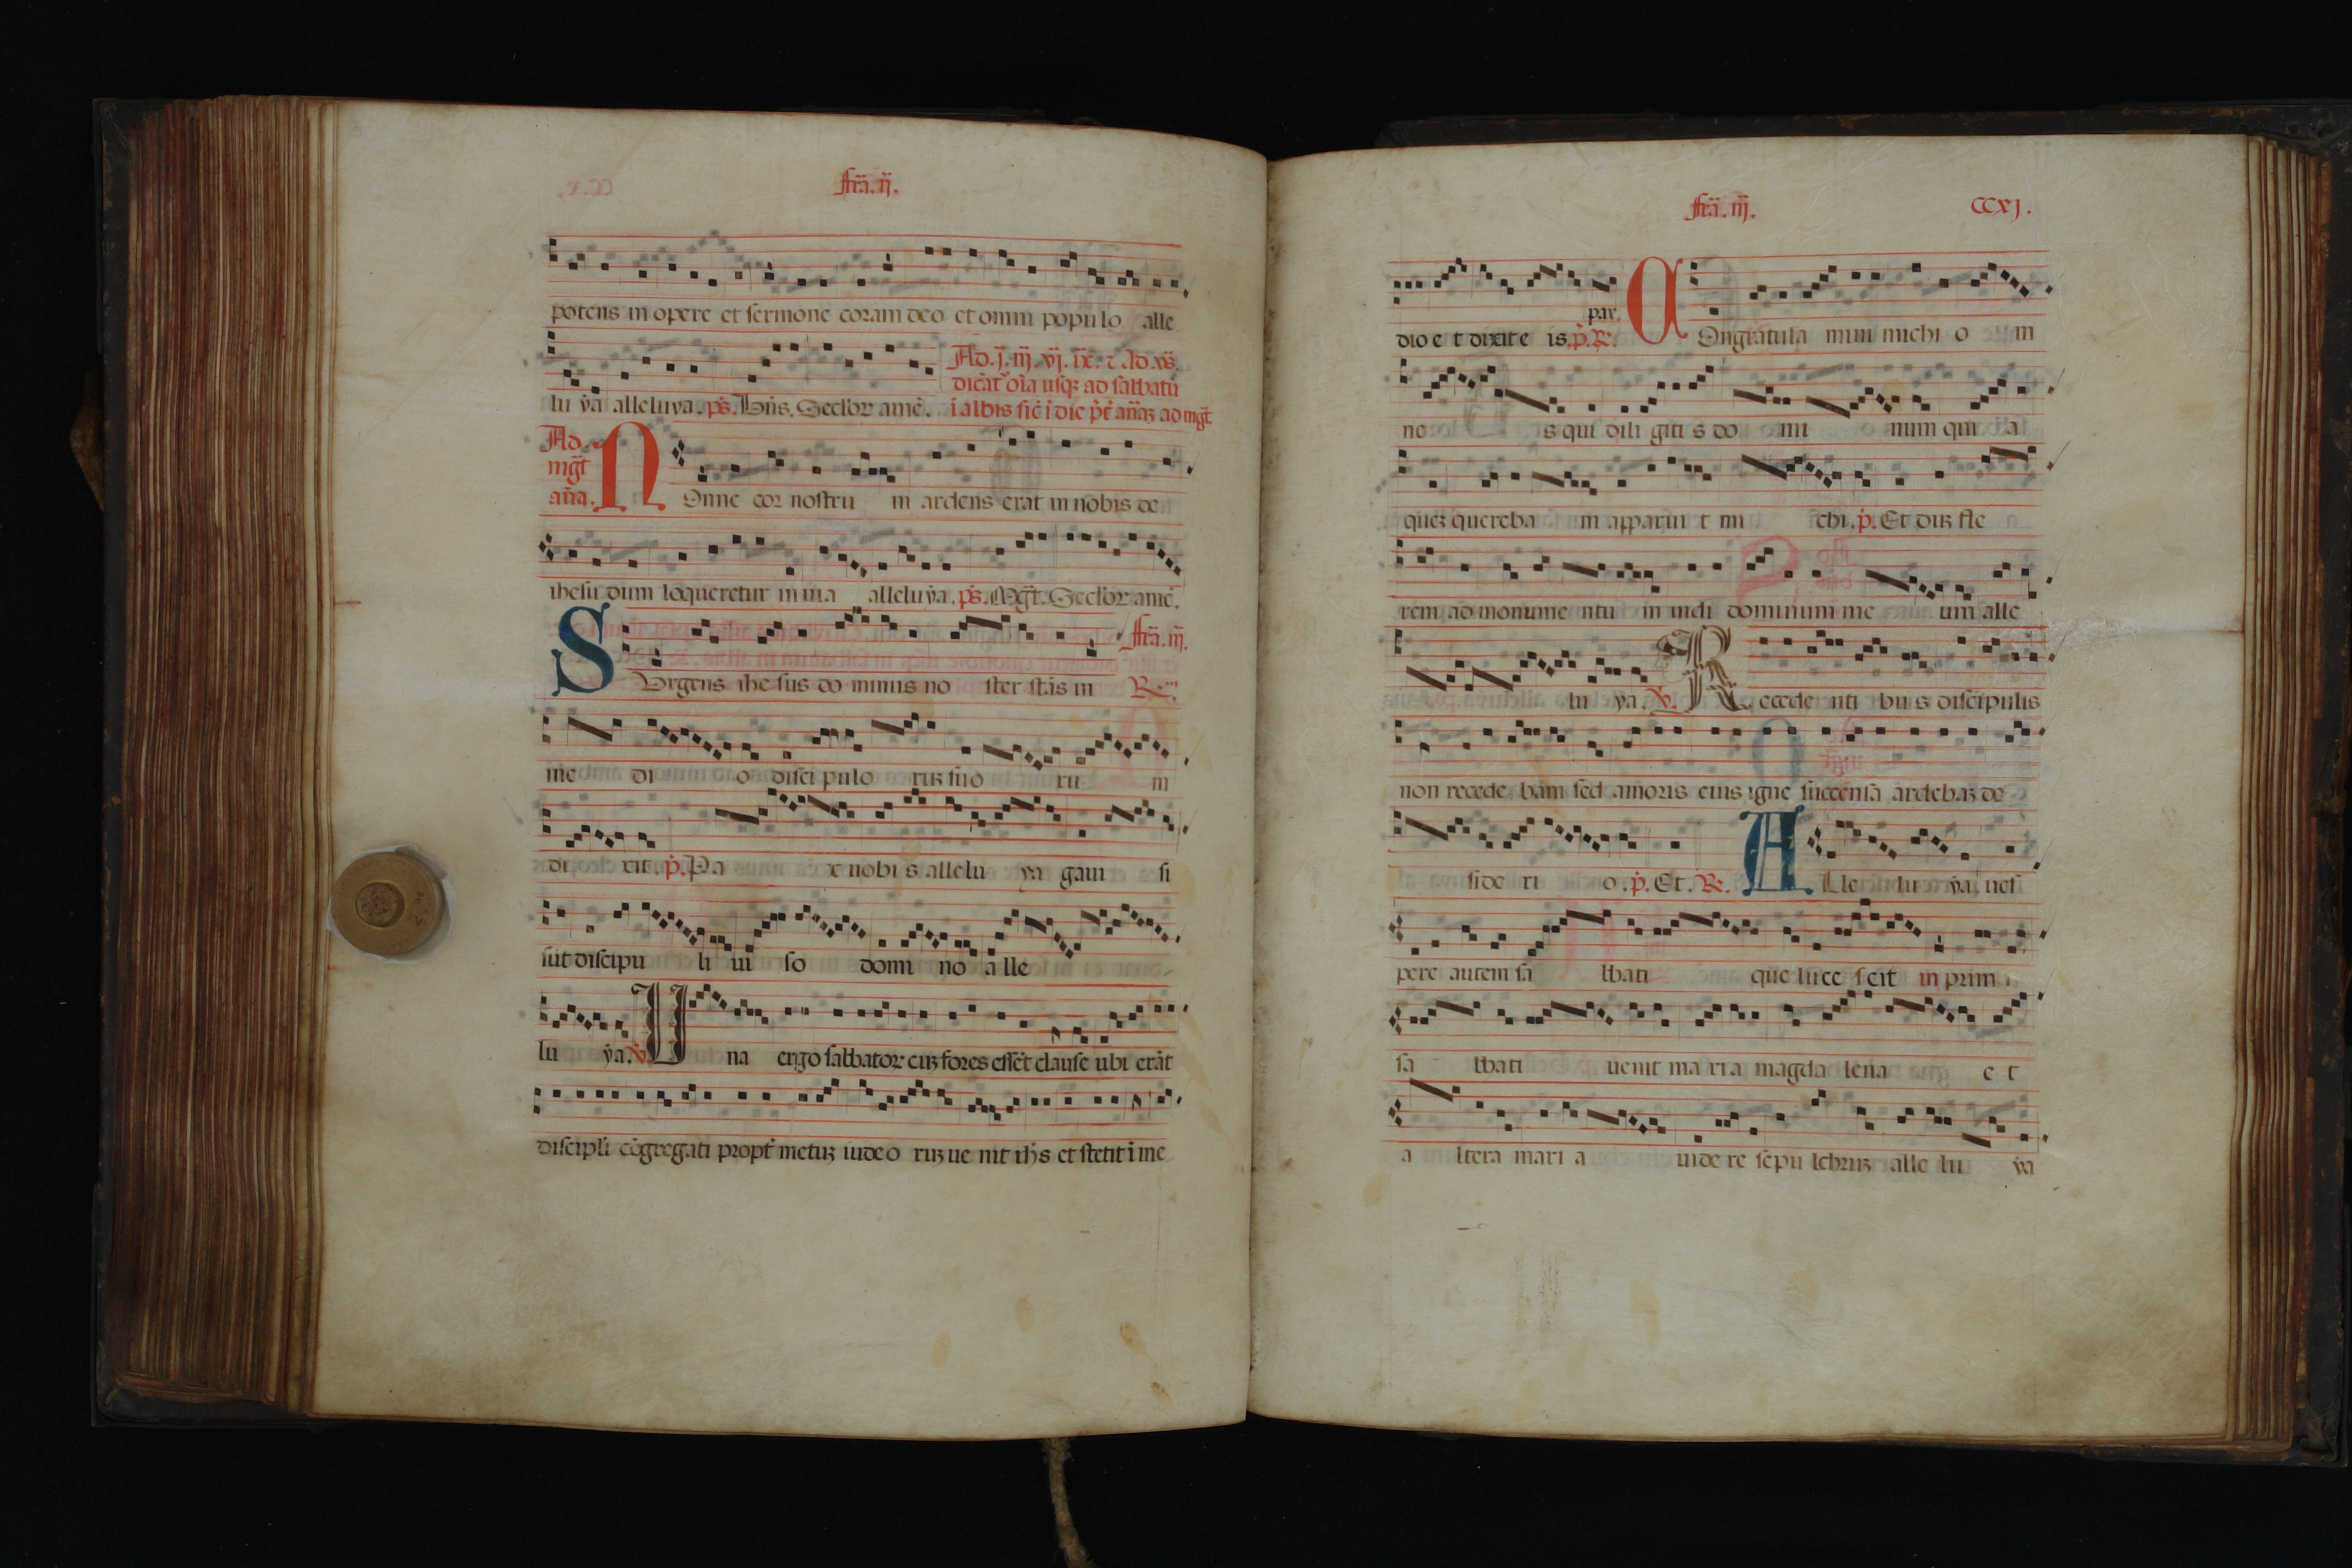 fr̃a. ij.
potens in opere et sermone coram deo et omni populo alle
Ad. j. iij. vj. ix. ⁊ ad vs̃.
dicãt᷑ oĩa usqꝫ ad sabbatũ
lu ya alleluya. ps̃. Dñs. Sećlor amẽ. ĩ albis sic̃ ĩ die
Ad.
mg̃t
añã. Nonne cor nostru m ardens erat in nobis de
ihesu dum loqueretur in uia alleluya. ps̃. Mg̃t. Sećlor amẽ.
fr̃a. iij.
Surgens ihe sus do minus no ster stãs in ℞
me di o disci pulo rũꝫ suo ru m
di xit. p̃. Pa x uobi s allelu ya gaui si
sũt discipu li ui so domi no a lle
lu ya. ℣ Una ergo sabbator cũꝫ fores essẽt clause ubi erãt
discipli cõgregati propt̃ metũꝫ iudeo rũꝫ ue nit ih̃s et stetit ĩ me
fr̃a. iij. CCxj.
pax.
dio e t dixit e is. p̃. ℞. Congratula mini michi o m
ne s qui dili giti s do mi num qui a
quẽꝫ quereba m apparui t mi chi. p̃. Et dũꝫ fle
rem ad monume ntu m uidi dominum me um alle
lu ya. ℣. Recede nti bu s discipulis
non recede bam sed amoris eius igne succensa ardebaꝫ de
side ri o. p̃. Et. ℞. A Lle lu ya uesi
pere autem sa bbati que luce scit in prim
sa bbati uenit ma ri a magda lena e t
a ltera mari a uide re sepu lchrũꝫ alle lu ya